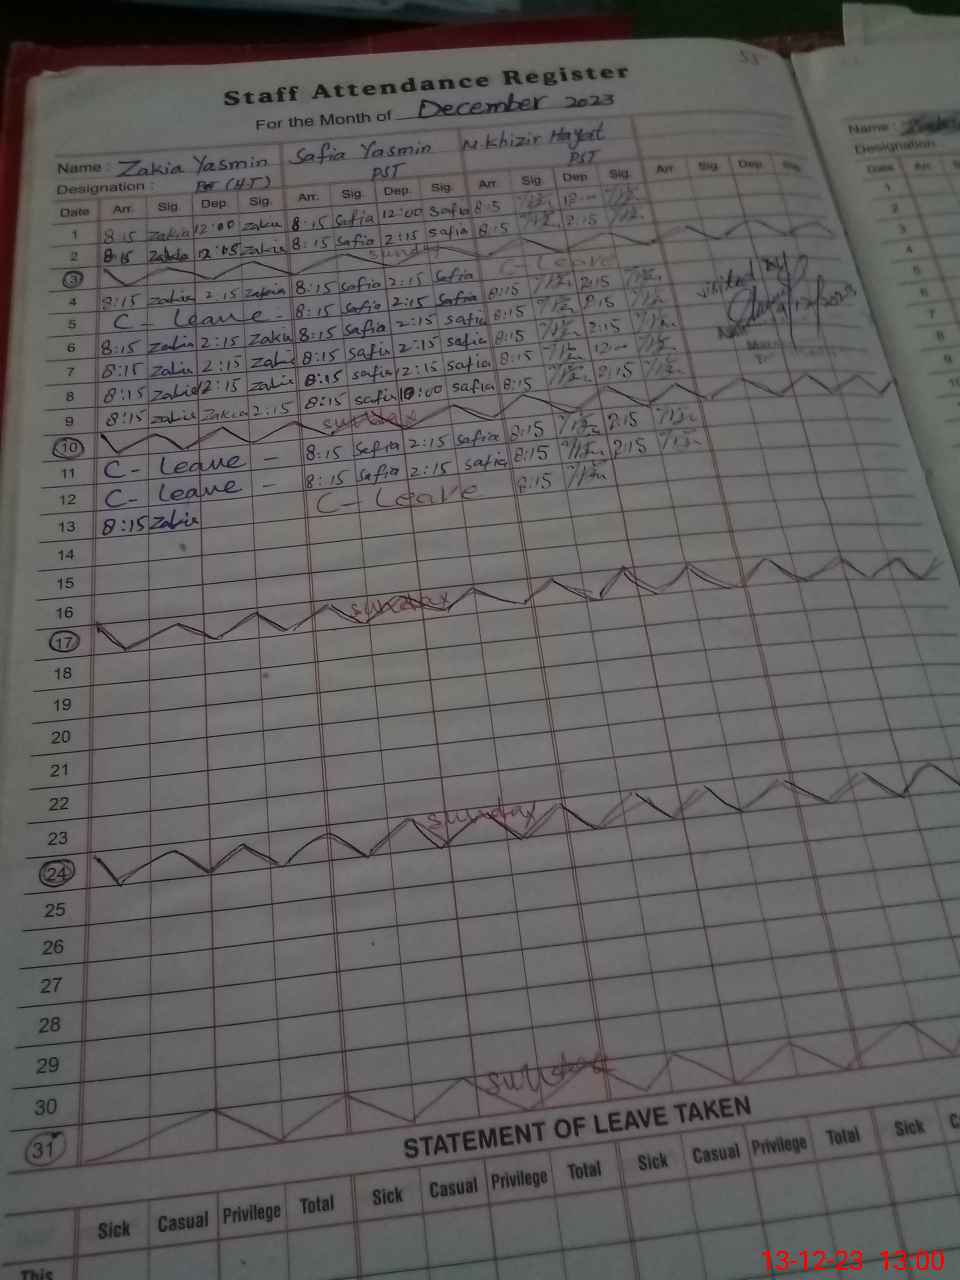 53
Staff Attendance Register
For the Month of December 2023
Name : Zakia Yasmin Safia Yasmin M.Khizir Hayat
Designation : PST (H.T) PST PST
Date Arr. Sig. Dep. Sig. Arr. Sig. Dep. Sig. Arr. Sig. Dep. Sig. Arr. Sig. Dep. Sig.
1 8:15 Zakia 12:00 Zakia 8:15 Safia 12:00 Safia 8:15 12:00
2 8:15 Zakia 12:05 Zakia 8:15 Safia 2:15 Safia 8:15 2:15
3 Sunday
4 8:15 Zakia 2:15 Zakia 8:15 Safia 2:15 Safia C-Leave
5 C- Leave - 8:15 Safia 2:15 Safia 8:15 2:15
6 8:15 Zakia 2:15 Zakia 8:15 Safia 2:15 Safia 8:15 2:15
7 8:15 Zakia 2:15 Zakia 8:15 Safia 2:15 Safia 8:15 2:15
8 8:15 Zakia 12:15 Zakia 8:15 Safia 12:15 Safia 8:15 12:00
9 8:15 Zakia Zakia 2:15 8:15 Safia 10:00 Safia 8:15 2:15
visited
10 Sunday
11 C- Leave - 8:15 Safia 2:15 Safia 8:15 2:15
12 C- Leave - 8:15 Safia 2:15 Safia 8:15 2:15
13 8:15 Zakia C- Leave 8:15
14
15
16
17 Sunday
18
19
20
21
22
23
24 Sunday
25
26
27
28
29
30
31 Sunday
STATEMENT OF LEAVE TAKEN
Sick Casual Privilege Total Sick Casual Privilege Total Sick Casual Privilege Total Sick
This
Name :
Designation
Date Arr.
1
2
3
4
5
6
7
8
9
10
13-12-23 13:00